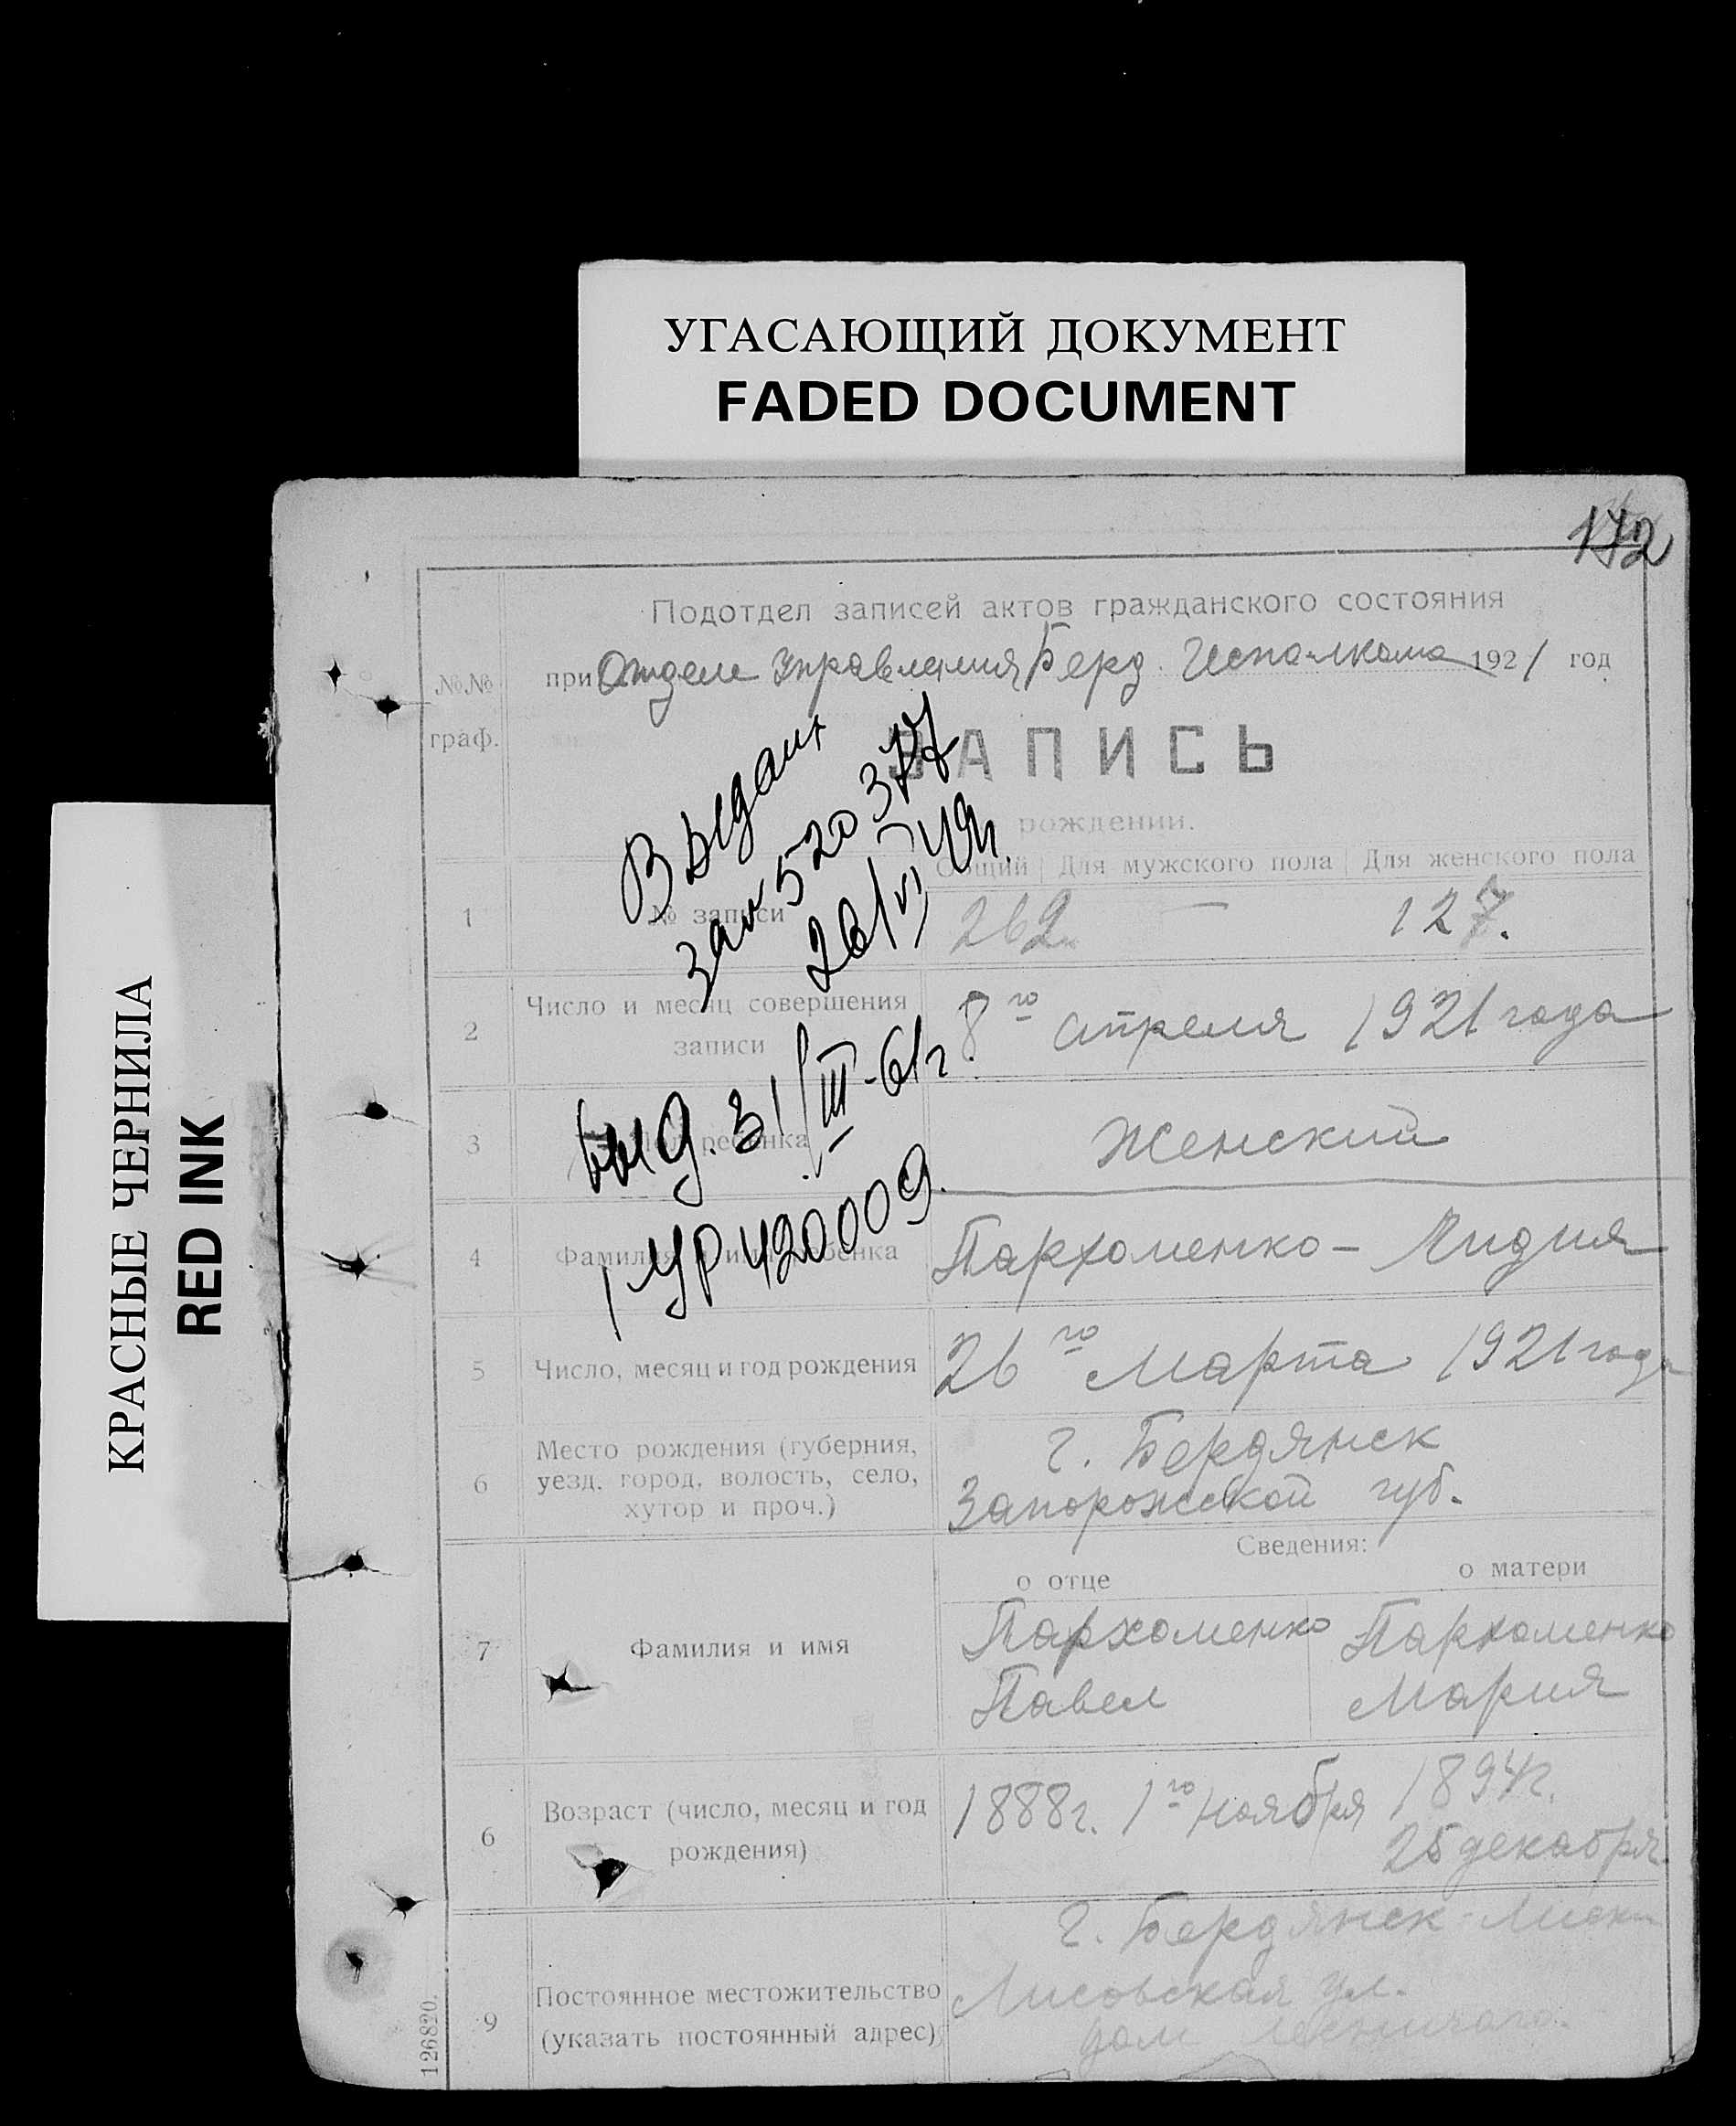 УГАСАЮЩИЙ ДОКУМЕНТ
FADED DOCUMENT
КРАСНЫЕ ЧЕРНИЛА
RED INK
172
Подотдел записей актов гражданского состояния
№№ граф.
при Отделе Управления Берд. Исполкома 1921 год
ЗАПИСЬ
рождении.
Общий Для мужского пола Для женского пола
1 № записи 262 — 127.
2 Число и месяц совершения записи 8го апреля 1921 года
3 Пол ребенка Женский
4 Фамилия и имя ребенка Пархоменко - Лидия
5 Число, месяц и год рождения 26го Марта 1921 года
6 Место рождения (губерния, уезд, город, волость, село, хутор и проч.) г. Бердянск
Запорожской губ.
Сведения:
о отце о матери
7 Фамилия и имя Пархоменко Пархоменко
Павел Мария
6 Возраст (число, месяц и год рождения) 1888г. 1го ноября 1894г.
25 декабря
9 Постоянное местожительство (указать постоянный адрес) г. Бердянск
Лисовская ул.
дом
126820.
выд. 31/III-61г.
1 УР 420009
26/VI 49г.